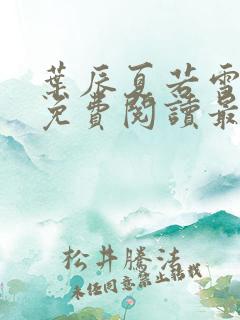 葉辰夏若雪
免費閱讀最
松井騰法
未經同意禁止轉載